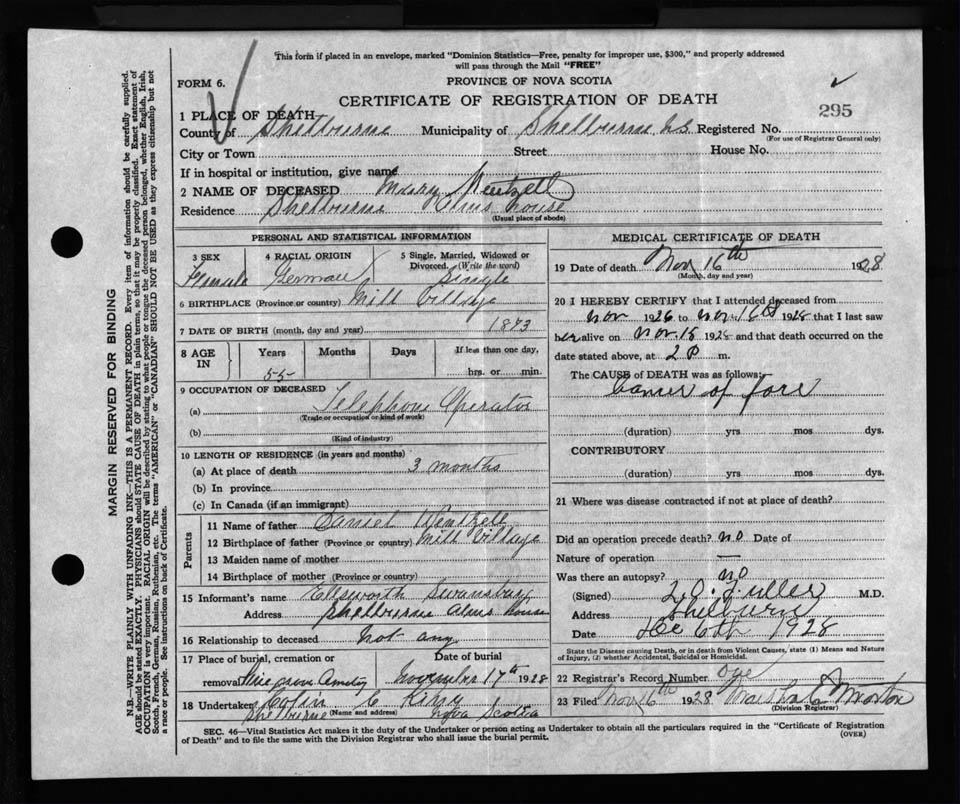 This form if placed in an envelope, marked "Dominion Statistics—Free, penalty for improper use, $300," and properly addressed
will pass through the Mail "FREE"
FORM 6.
PROVINCE OF NOVA SCOTIA
CERTIFICATE OF REGISTRATION OF DEATH
295
1 PLACE OF DEATH
County of Shelburne Municipality of Shelburne N.S. Registered No.
(For use of Registrar General only)
City or Town Street House No.
If in hospital or institution, give name
2 NAME OF DECEASED Mary Wentzell
Residence Shelburne Alms house
(Usual place of abode)
PERSONAL AND STATISTICAL INFORMATION
3 SEX 4 RACIAL ORIGIN 5 Single, Married, Widowed or
Divorced. (Write the word)
Female German Single
6 BIRTHPLACE (Province or country) Mill Village
7 DATE OF BIRTH (month, day and year) 1873
8 AGE IN Years Months Days If less than one day,
55 hrs. or min.
9 OCCUPATION OF DECEASED
(a) Telephone Operator
(Trade or occupation or kind of work)
(b)
(Kind of industry)
10 LENGTH OF RESIDENCE (in years and months)
(a) At place of death 3 months
(b) In province
(c) In Canada (if an immigrant)
Parents
11 Name of father Daniel Wentzell
12 Birthplace of father (Province or country) Mill Village
13 Maiden name of mother
14 Birthplace of mother (Province or country)
15 Informant's name Ellsworth Swansburg
Address Shelburne Alms house
16 Relationship to deceased not any
17 Place of burial, cremation or Date of burial
removal Pine Grove Cemetery November 17th 1928
18 Undertaker Colin C
Shelburne (Name and address) Nova Scotia
MEDICAL CERTIFICATE OF DEATH
19 Date of death Nov 16th 1928
(Month, day and year)
20 I HEREBY CERTIFY that I attended deceased from
Nov 1926 to Nov. 16th 1928 that I last saw
her alive on Nov. 15 1928 and that death occurred on the
date stated above, at 2 P m.
The CAUSE of DEATH was as follows:
Cancer of face
(duration) yrs mos dys.
CONTRIBUTORY
(duration) yrs mos dys.
21 Where was disease contracted if not at place of death?
Did an operation precede death? no Date of
Nature of operation —
Was there an autopsy? no
(Signed) L.O. Fuller M.D.
Address Shelburne
Date Dec 6th 1928
State the Disease causing Death, or in death from Violent Causes, state (1) Means and Nature
of Injury, (2) whether Accidental, Suicidal or Homicidal.
22 Registrar's Record Number One
23 Filed Nov 16th 1928 Marshal C Morton
(Division Registrar)
SEC. 46—Vital Statistics Act makes it the duty of the Undertaker or person acting as Undertaker to obtain all the particulars required in the "Certificate of Registration
of Death" and to file the same with the Division Registrar who shall issue the burial permit.
(OVER)
MARGIN RESERVED FOR BINDING
N.B.—WRITE PLAINLY WITH UNFADING INK—THIS IS A PERMANENT RECORD. Every item of information should be carefully supplied.
AGE should be stated EXACTLY. PHYSICIANS should STATE CAUSE OF DEATH in plain terms, so that it may be properly classified. Exact statement of
OCCUPATION is very important. RACIAL ORIGIN will be described by stating to what people or tongue the deceased person belonged, whether English, Irish,
Scotch, French, German, Russian, Ruthenian, etc. The terms "AMERICAN" or "CANADIAN" SHOULD NOT BE USED as they express citizenship but not
a race or people. See instructions on back of Certificate.